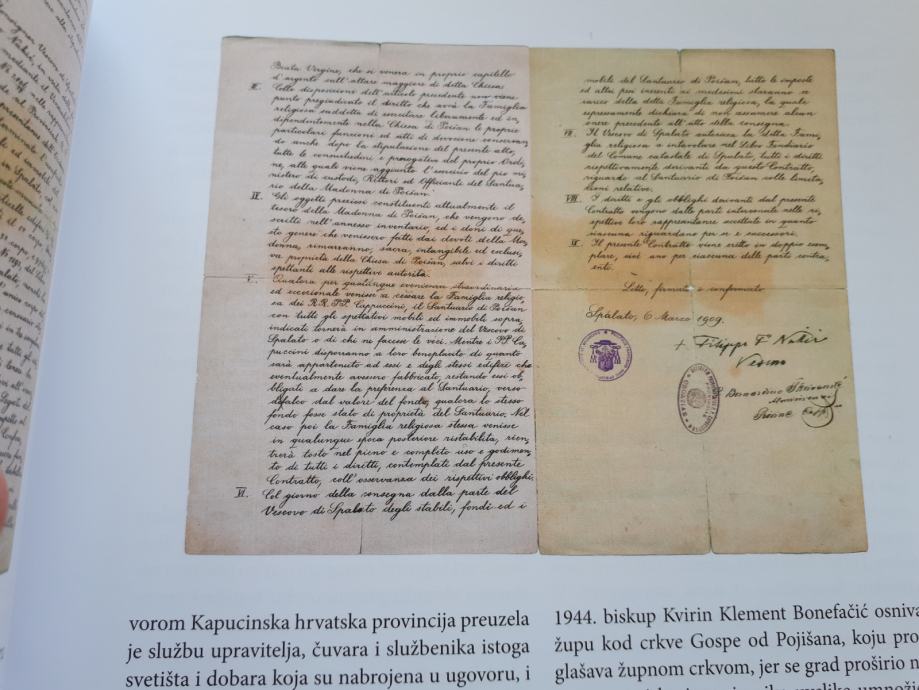 Beata Vergine, che si venera in proprio capitello
d'argento sull'altare maggiore di detta Chiesa
III. Colla disposizione dell'articolo precedente non viene
punto pregiudicato il diritto che avrà la Famiglia
religiosa suddetta di esercitare liberamente ed in,
dipendentemente nella Chiesa di Poišan le proprie
particolari funzioni ed atti di devozione conservan,
do anche dopo la stipulazione del presente atto,
tutte le consuetudini e prerogative del proprio Ordi,
ne, alle quali viene aggiunto l'esercizio del pio mi,
nistero di custodi, Rettori ed Officianti del Santua,
rio della Madonna di Poišan.
IV. Gli oggetti preziosi constituenti attualmente il
tesoro della Madonna di Poišan, che vengono de,
scritti nell'annesso inventario, ed i doni di que,
sto genere che venissero fatti dai devoti della Ma,
donna, rimarranno, sacra, intangibile ed esclusi,
va proprietà della Chiesa di Poišan, salvi i diritti
spettanti alle rispettive autorità.
V. Qualora per qualunque evenienza straordinaria
ed eccezionale venisse a cessare la Famiglia religio,
sa dei R.R. P.P. Cappuccini, il Santuario di Poišan
con tutti gli spettativi mobili ed immobili sopra,
indicati tornerà in amministrazione del Vescovo di
Spalato o di chi ne facesse le veci. Mentre i P.P. Ca,
puccini disporranno a loro beneplacito di quanto
sarà appartenuto ad essi e degli stessi edifici che
eventualmente avessero fabbricato, restando essi ob,
bligati a dare la preferenza al Santuario, verso
difalco dal valore del fondo, qualora lo stesso
fondo fosse stato di proprietà del Santuario. Nel
caso poi la Famiglia religiosa stessa venisse
in qualunque epoca posteriore ristabilita, rien,
trerà tosto nel pieno e completo uso e godimen,
to di tutti i diritti, contemplati dal presente
Contratto, coll'osservanza dei rispettivi obblighi.
VI. Col giorno della consegna dalla parte del
Vescovo di Spalato degli stabili, fondi ed i
mobili del Santuario di Poišan, tutte le imposte
ed altri pesi inerenti ai medesimi staranno a
carico della detta Famiglia religiosa, la quale
espressamente dichiara di non assumere alcun
onere precedente all'atto della consegna.
VII. Il Vescovo di Spalato autorizza la detta Fami,
glia religiosa a intavolare nel Libro Fondiario
del Comune catastale di Spalato, tutti i diritti
rispettivamente derivanti da questo Contratto,
riguardo al Santuario di Poišan colle limita,
zioni relative.
VIII. I diritti e gli obblighi derivanti dal presente
Contratto vengono dalle parti interessate nelle ri,
spettive loro rappresentanze accettati in quanto
ciascuna riguardano per se e successori.
IX. Il presente Contratto viene eretto in doppio esem,
plare, cioè uno per ciascuna delle parti contra,
enti.
Letto, firmato e confermato
Spalato, 6 Marzo 1909.
+ Filippo F. Nakić
Vescovo
Bernardino
vorom Kapucinska hrvatska provincija preuzela
je službu upravitelja, čuvara i službenika istoga
svetišta i dobara koja su nabrojena u ugovoru, i
1944. biskup Kvirin Klement Bonefačić osniva
župu kod crkve Gospe od Pojišana, koju pro
glašava župnom crkvom, jer se grad proširio n